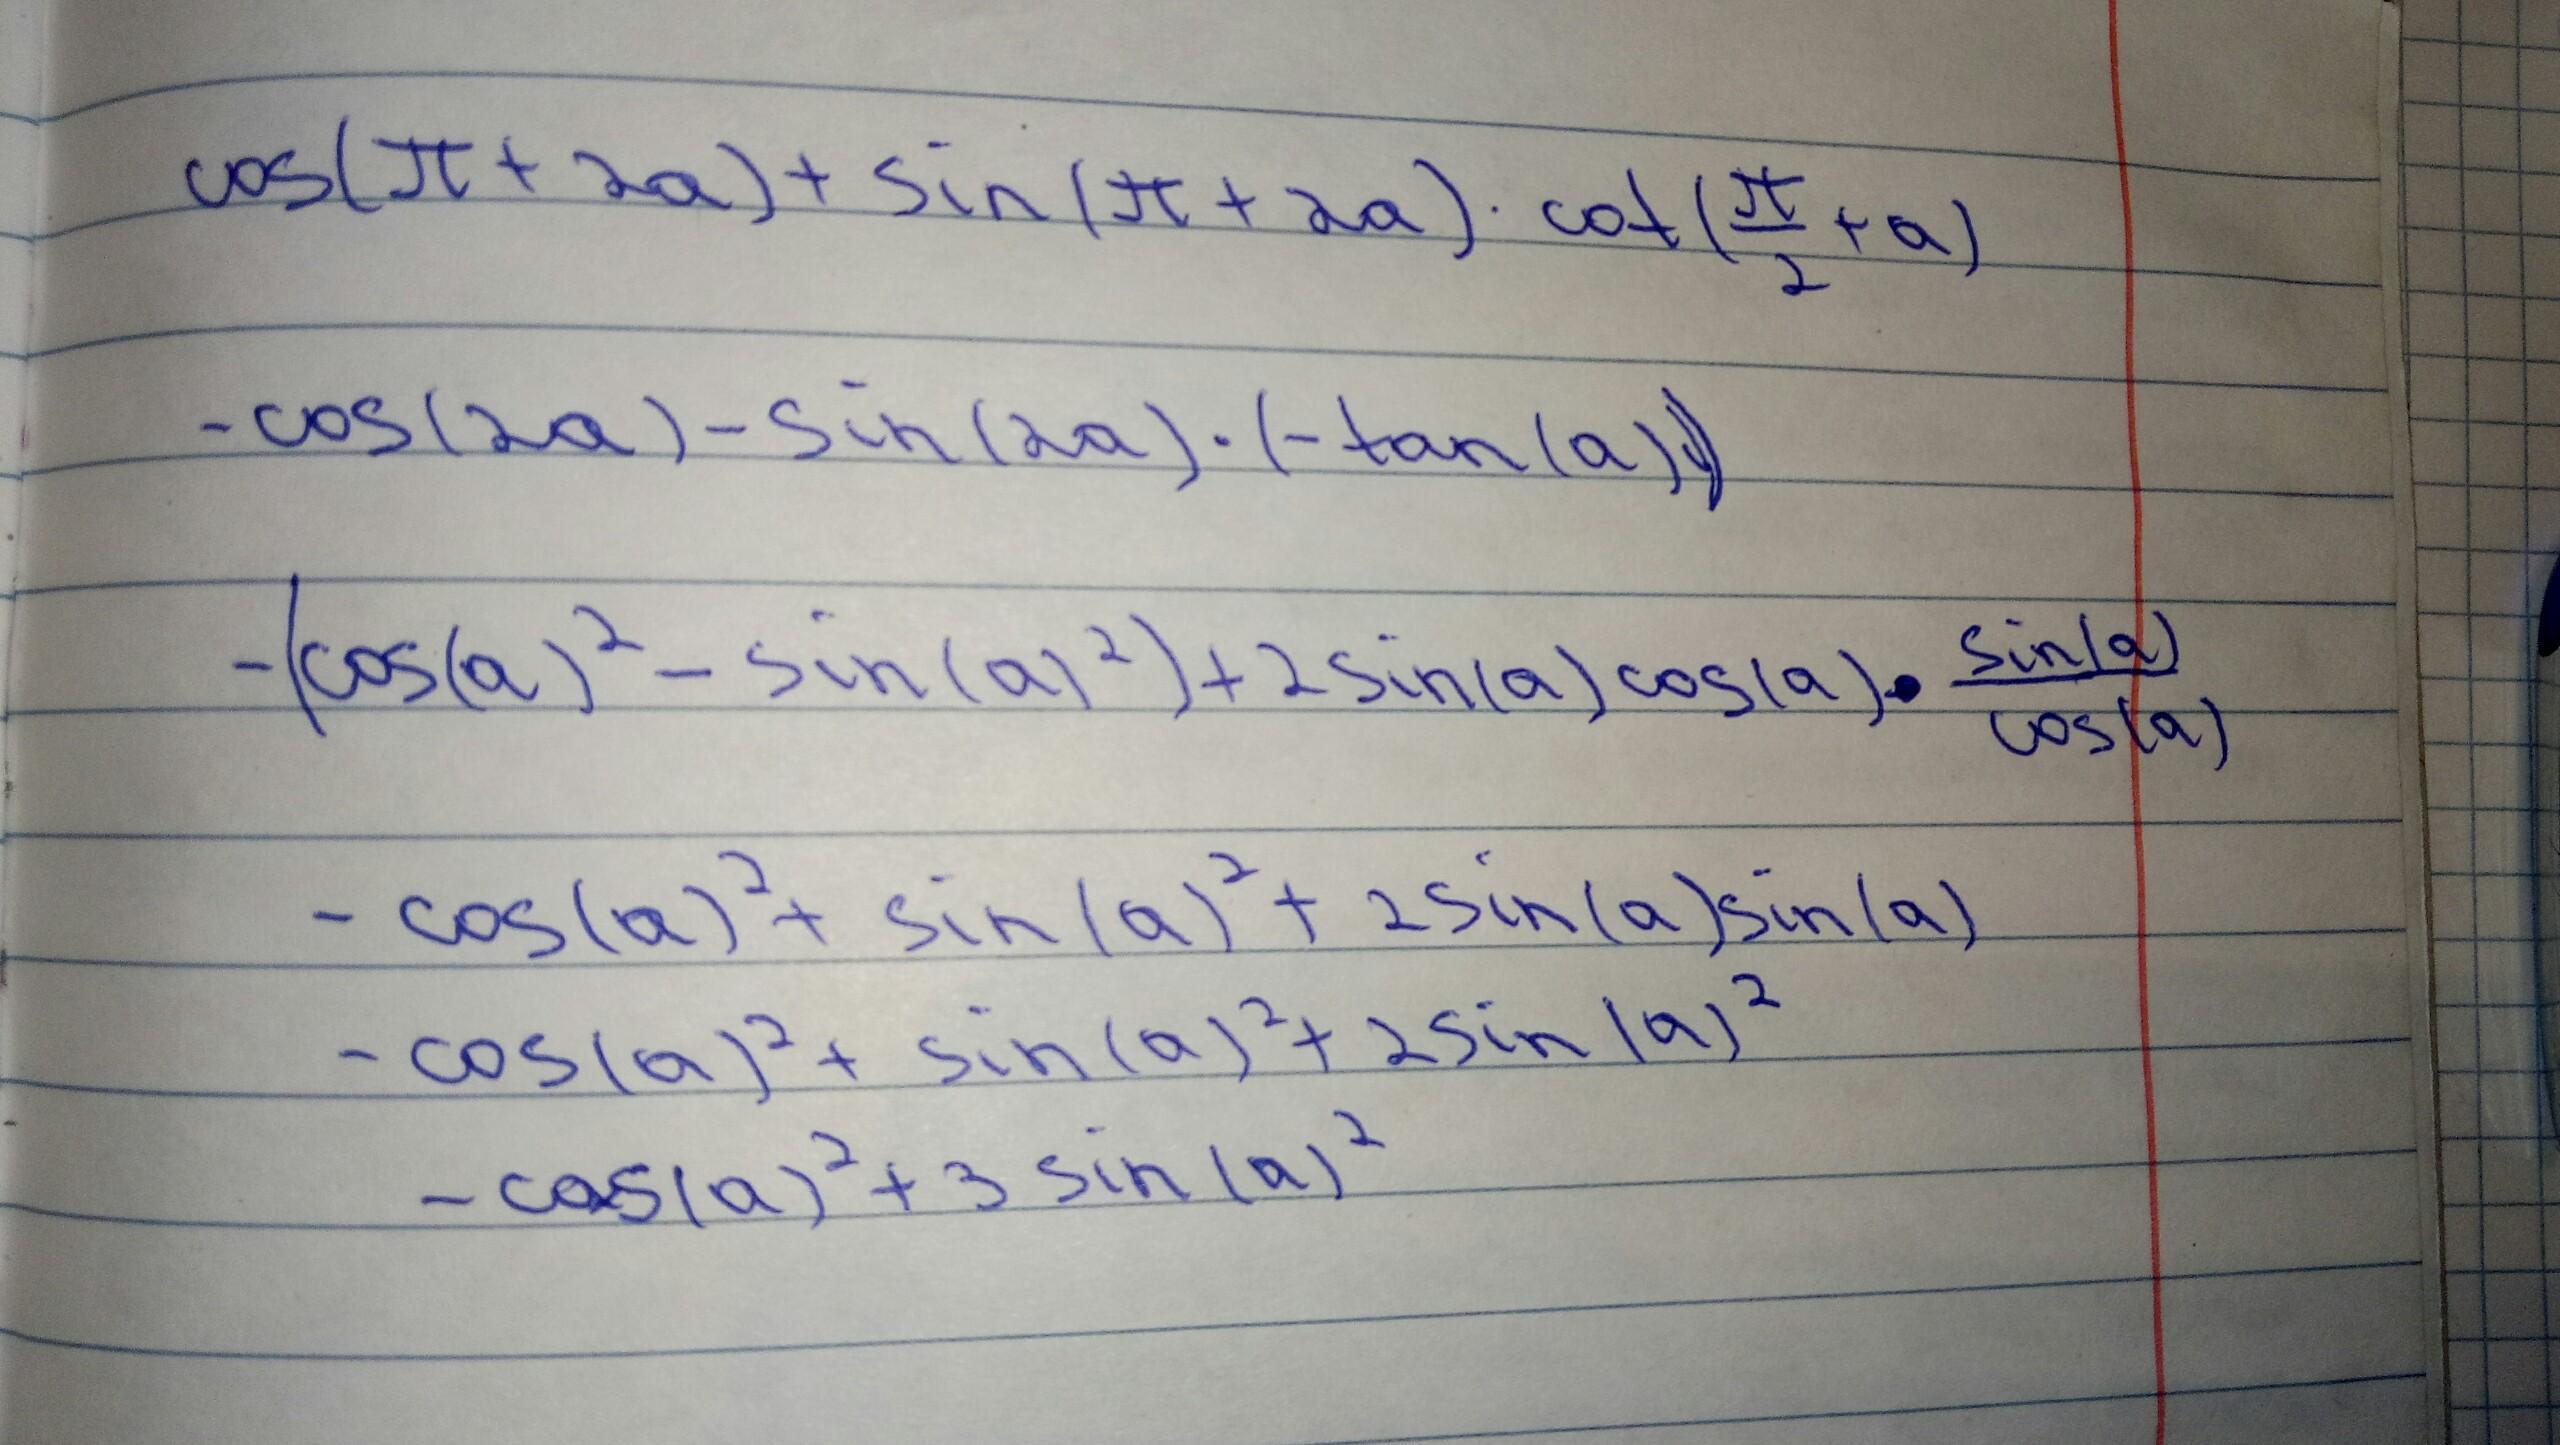 cos(π + 2a) + sin(π + 2a) · cot(π/2 + a)
-cos(2a) - sin(2a) · (-tan(a))
-(cos(a)² - sin(a)²) + 2 sin(a) cos(a) · sin(a)/cos(a)
- cos(a)² + sin(a)² + 2 sin(a) sin(a)
- cos(a)² + sin(a)² + 2 sin(a)²
- cos(a)² + 3 sin(a)²